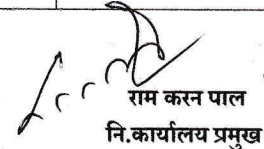 राम करन पाल
नि.कार्यालय प्रमुख